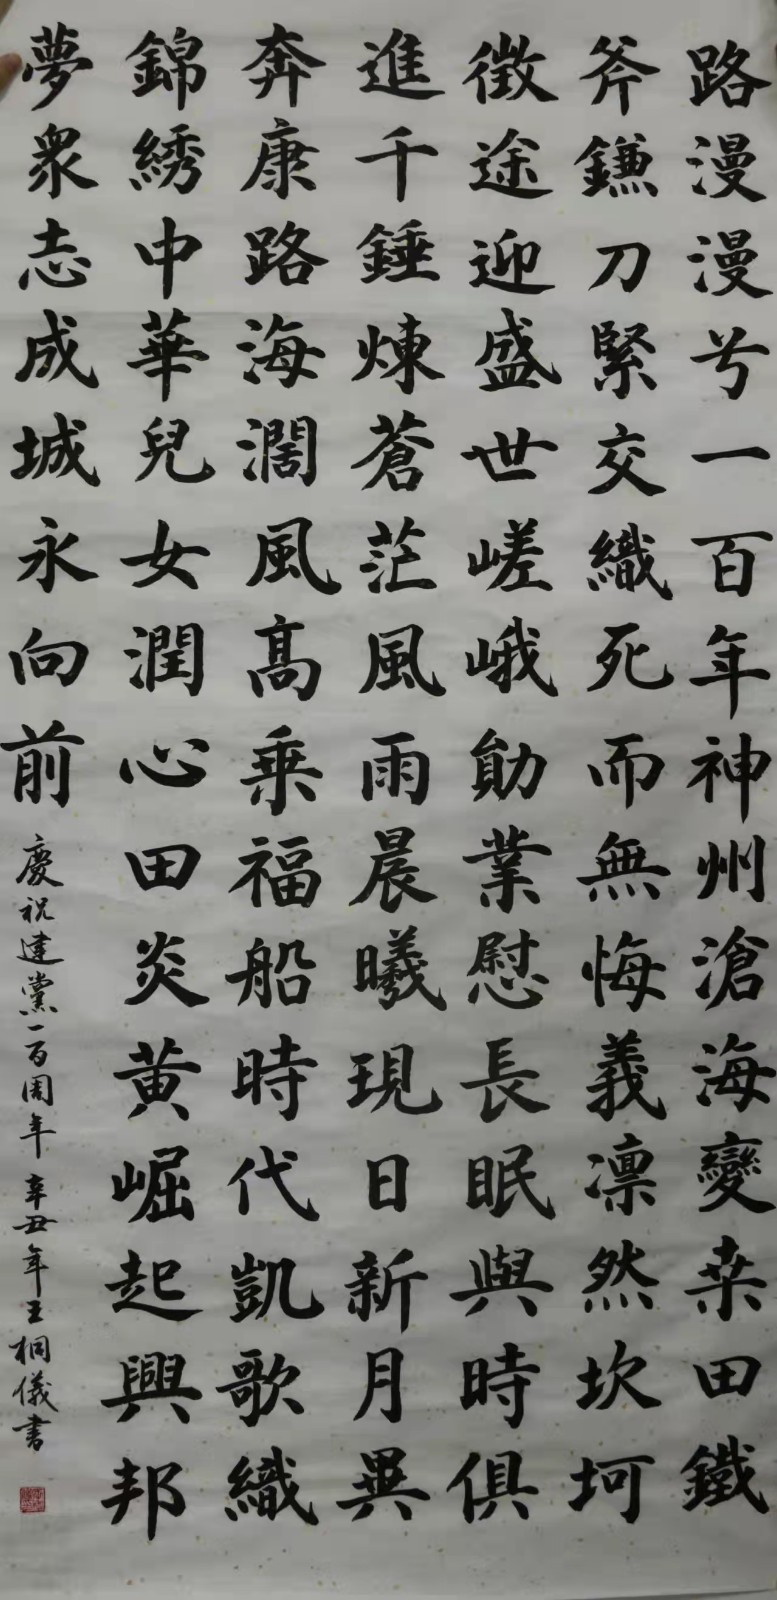 路漫漫兮一百年神州滄海變桒田鐵
斧鐮刀緊交織死而無悔義凛然坎坷
徴途迎盛世嵯峨勛業慰長眠與時俱
進千錘煉蒼茫風雨晨曦現日新月異
奔康路海濶風髙乗福船時代凱歌織
錦綉中華兒女潤心田炎黄崛起興邦
夢衆志成城永向前
慶祝建黨一百周年 辛丑年王桐儀書